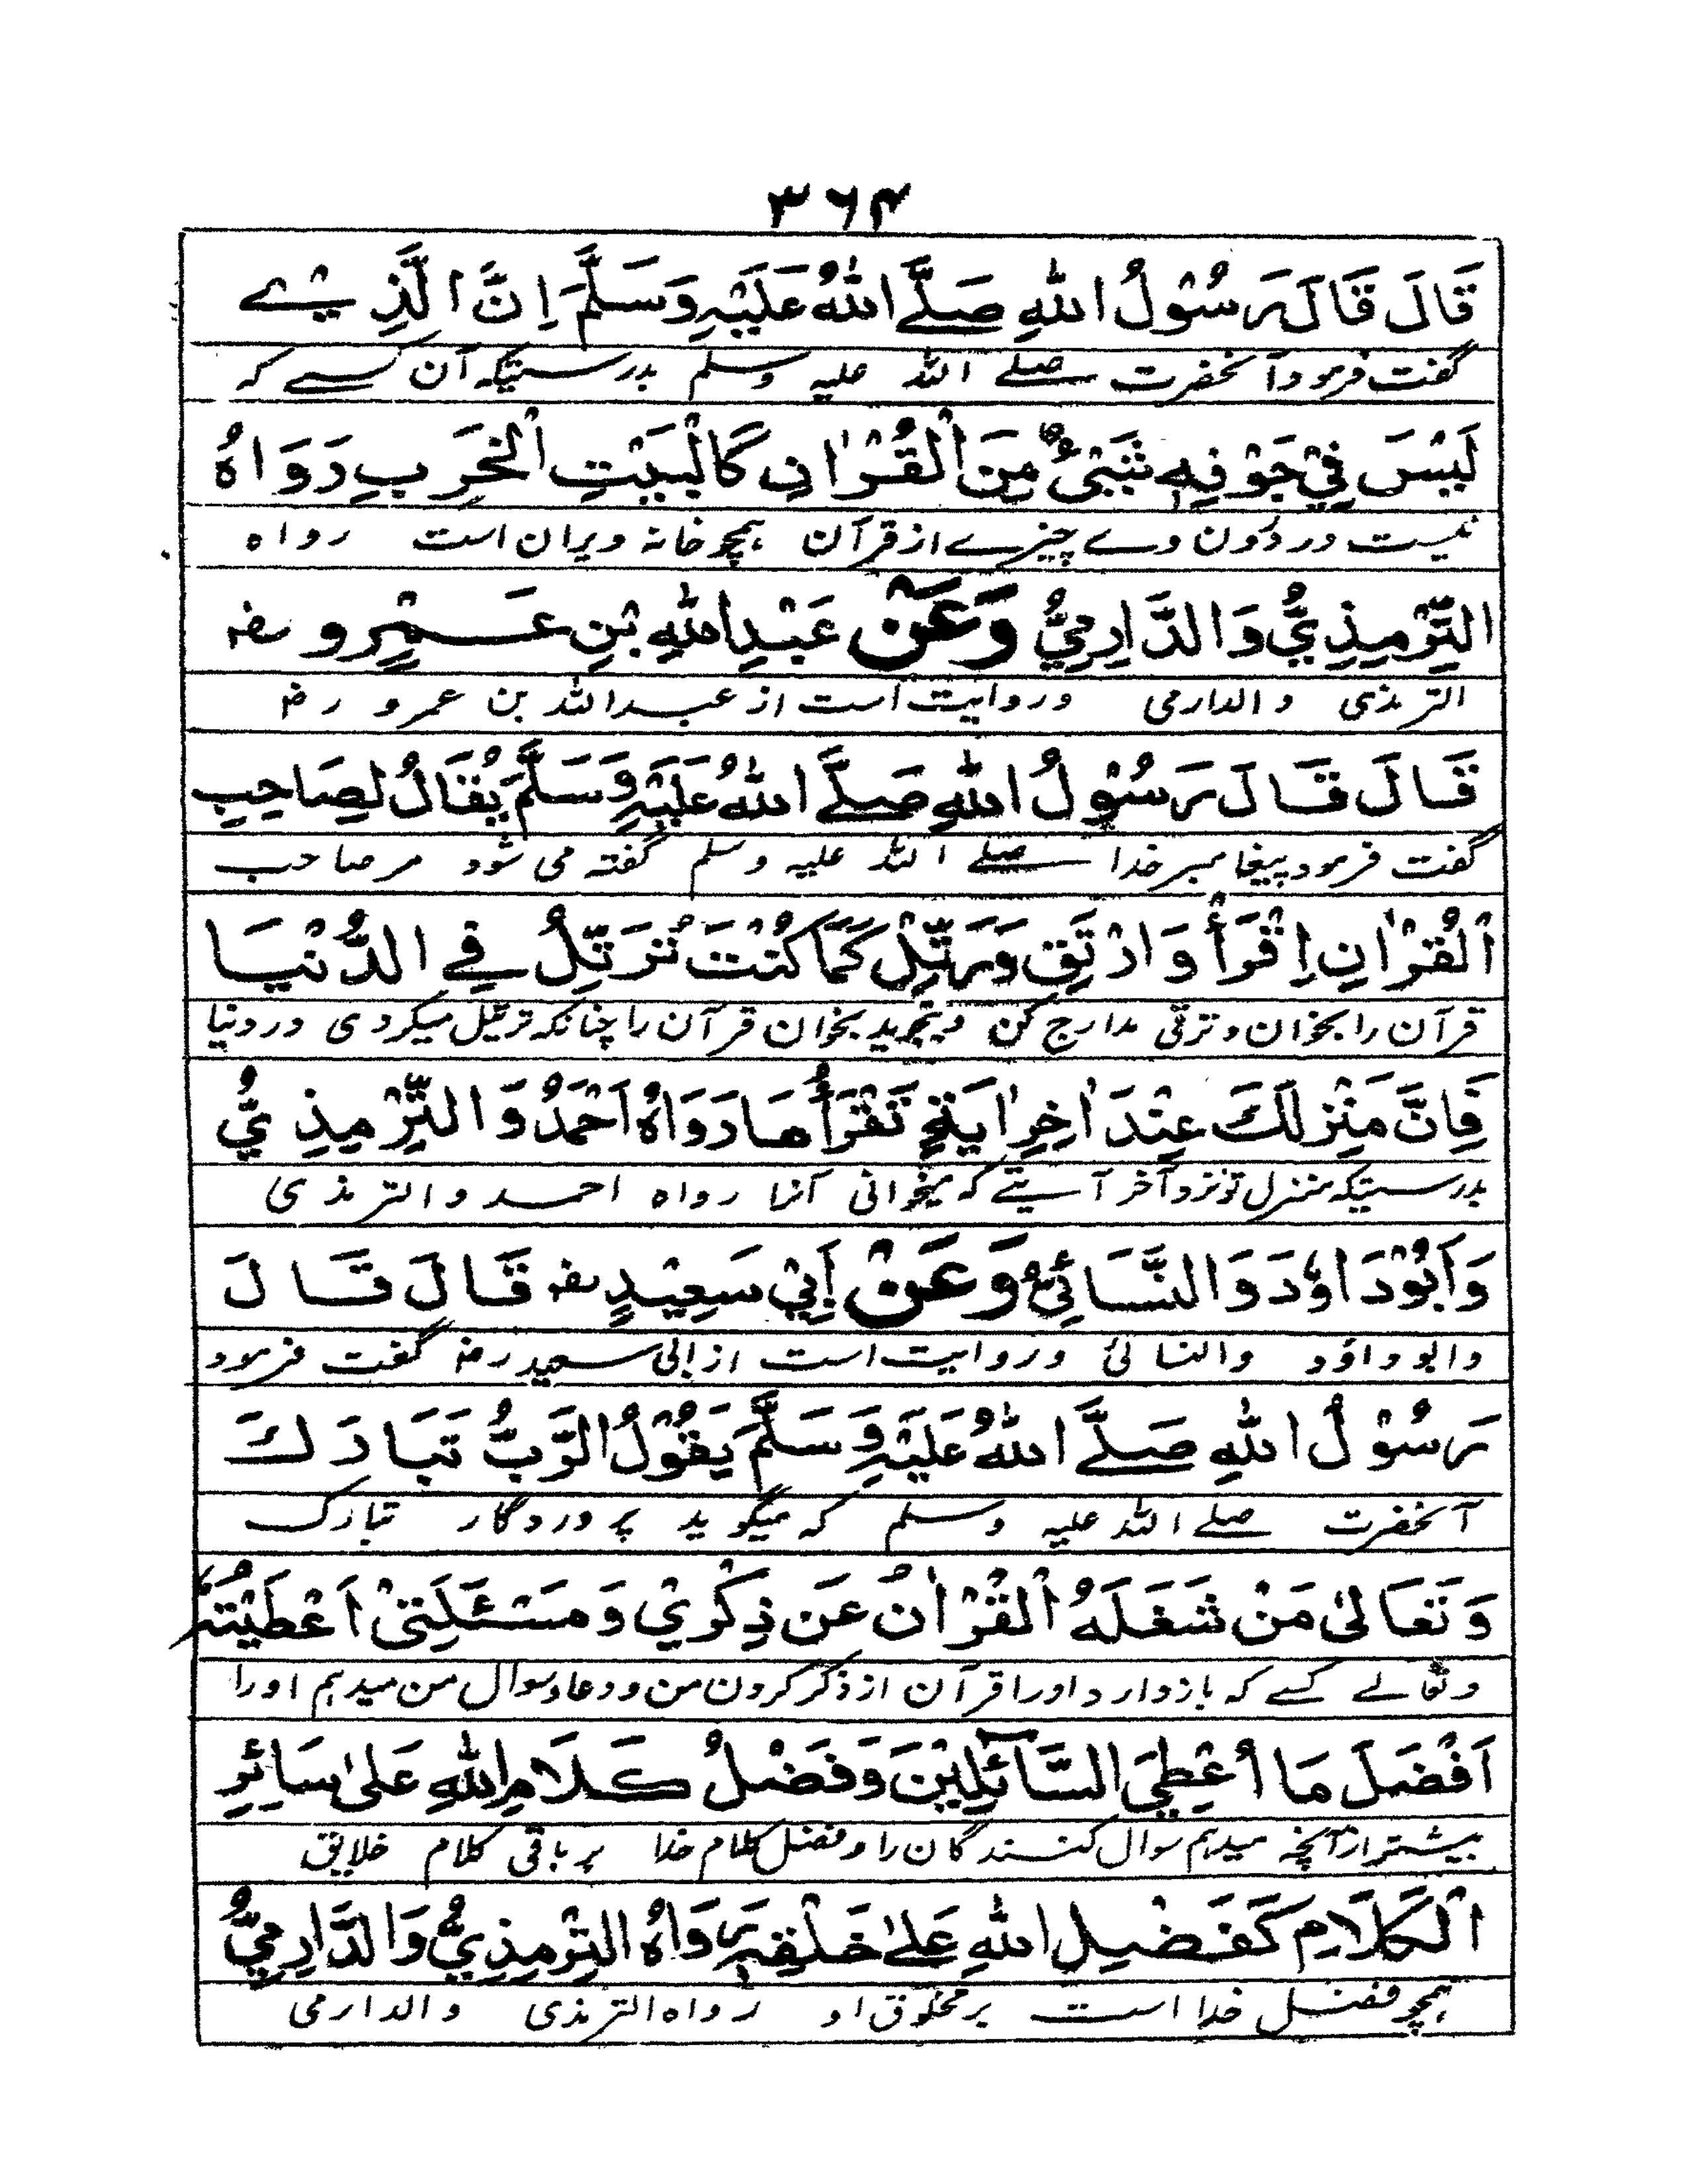 ۳۶۴
قَالَ قَالَ رَسُوْلُ اللهِ صَلَّے اللهُ عَلَیْہِ وَسَلَّمَ اِنَّ الَّذِیْ
گفت فرمود آنحضرت صلے اللہ علیہ وسلم بدرستیکہ آن کسے کہ
لَیْسَ فِيْ جَوْفِهٖ شَیْئٌ مِنَ الْقُرْاٰنِ کَالْبَیْتِ الْخَرِبِ رَوَاہُ
نیست در درون وے چیزے از قرآن ہمچو خانہ ویران است رواہ
التِّرْمِذِيُّ وَالدَّارِمِيُّ وَعَنْ عَبْدِ اللهِ بْنِ عَمْرٍو رضہ
الترمذی والدارمی و روایت است از عبد اللہ بن عمرو رضہ
قَالَ قَالَ رَسُوْلُ اللهِ صَلَّے اللهُ عَلَیْہِ وَسَلَّمَ یُقَالُ لِصَاحِبِ
گفت فرمود پیغامبر خدا صلے اللہ علیہ وسلم گفتہ می شود مر صاحب
الْقُرْاٰنِ اِقْرَأْ وَارْتَقِ وَرَتِّلْ کَمَا کُنْتَ تُرَتِّلُ فِي الدُّنْیَا
قرآن را بخوان و ترقی مدارج کن و بتجوید بخوان قرآن را چنانکہ ترتیل میکردی در دنیا
فَاِنَّ مَنْزِلَكَ عِنْدَ اٰخِرِ اٰیَةٍ تَقْرَأُهَا رَوَاہُ اَحْمَدُ وَالتِّرْمِذِيُّ
بدرستیکہ منزل تو نزد آخر آیتے کہ میخوانی آنرا رواہ احمد والترمذی
وَاَبُوْدَاوٗدَ وَالنَّسَائِیُّ وَعَنْ اَبِيْ سَعِیْدٍ رضہ قَالَ قَالَ
وابوداؤد والنسائی و روایت است از ابی سعید رضہ گفت فرمود
رَسُوْلُ اللهِ صَلَّے اللهُ عَلَیْہِ وَسَلَّمَ یَقُوْلُ الرَّبُّ تَبَارَكَ
آنحضرت صلے اللہ علیہ وسلم کہ میگوید پروردگار تبارک
وَتَعَالٰی مَنْ شَغَلَهُ الْقُرْاٰنُ عَنْ ذِکْرِيْ وَمَسْئَلَتِیْ اَعْطَیْتُهٗ
وتعالے کسے کہ بازدارد اورا قرآن از ذکر کردن من و دعا و سوال من میدہم اورا
اَفْضَلَ مَا اُعْطِيَ السَّآئِلِیْنَ وَفَضْلُ کَلَامِ اللهِ عَلٰی سَائِرِ
بیشتر از آنچہ میدہم سوال کنندگان را و فضل کلام خدا بر باقی کلام خلایق
الْکَلَامِ کَفَضْلِ اللهِ عَلٰے خَلْقِهٖ رَوَاہُ التِّرْمِذِيُّ وَالدَّارِمِيُّ
ہمچو فضل خدا است بر مخلوق او رواہ الترمذی والدارمی